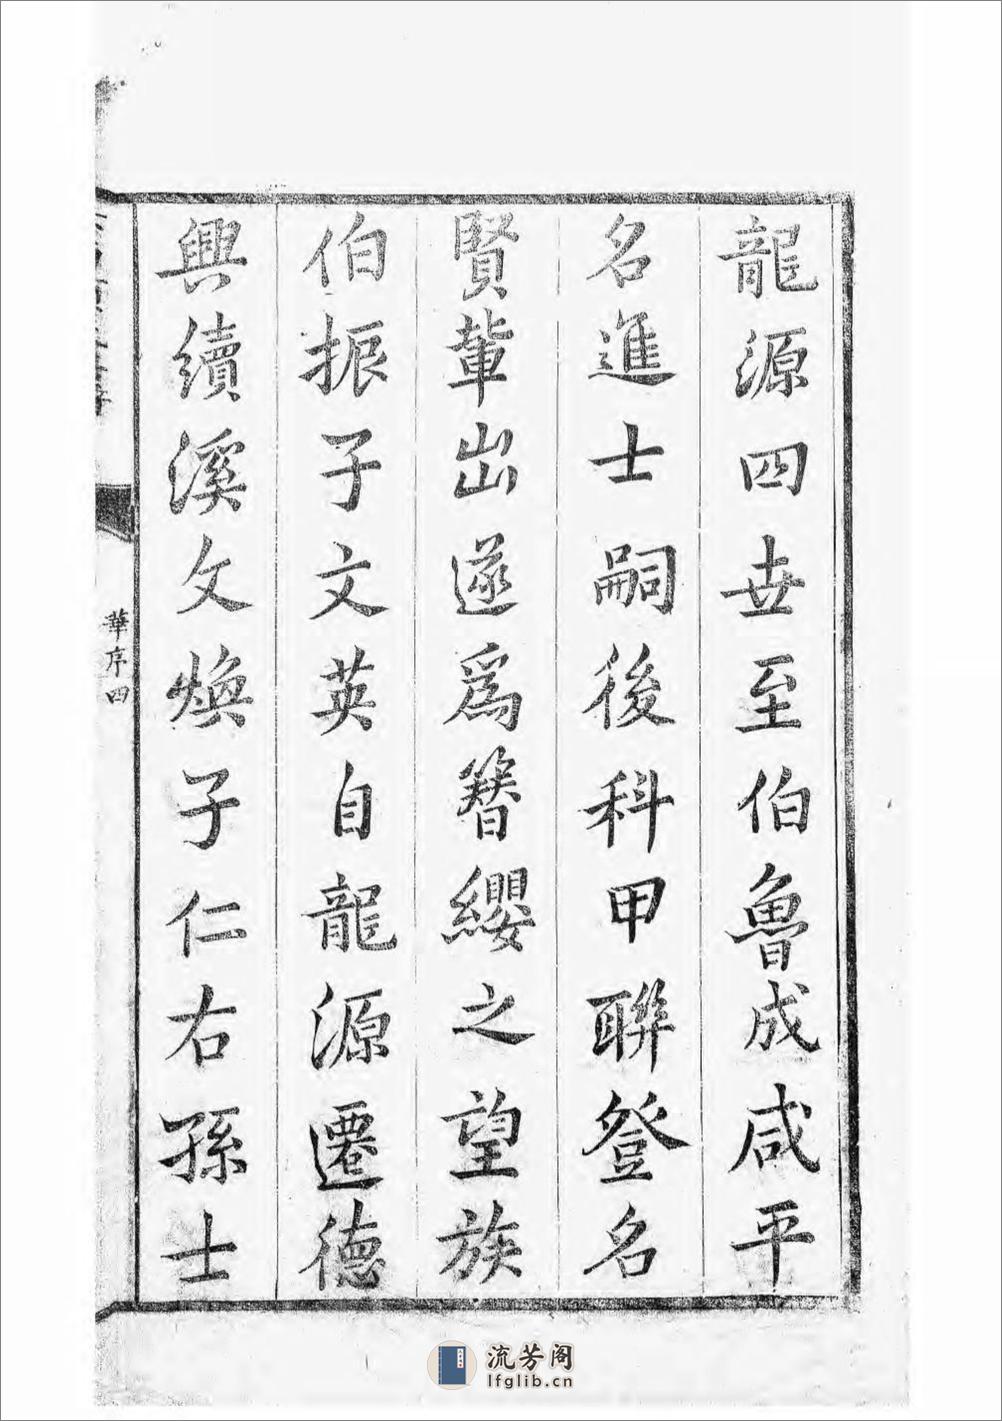 龍源四世至伯魯成咸平
名進士嗣後科甲聯登名
賢輩出遂爲簪纓之望族
伯振子文英自龍源遷德
興續溪文煥子仁右孫士
華序四
流芳阁
lfglib.cn